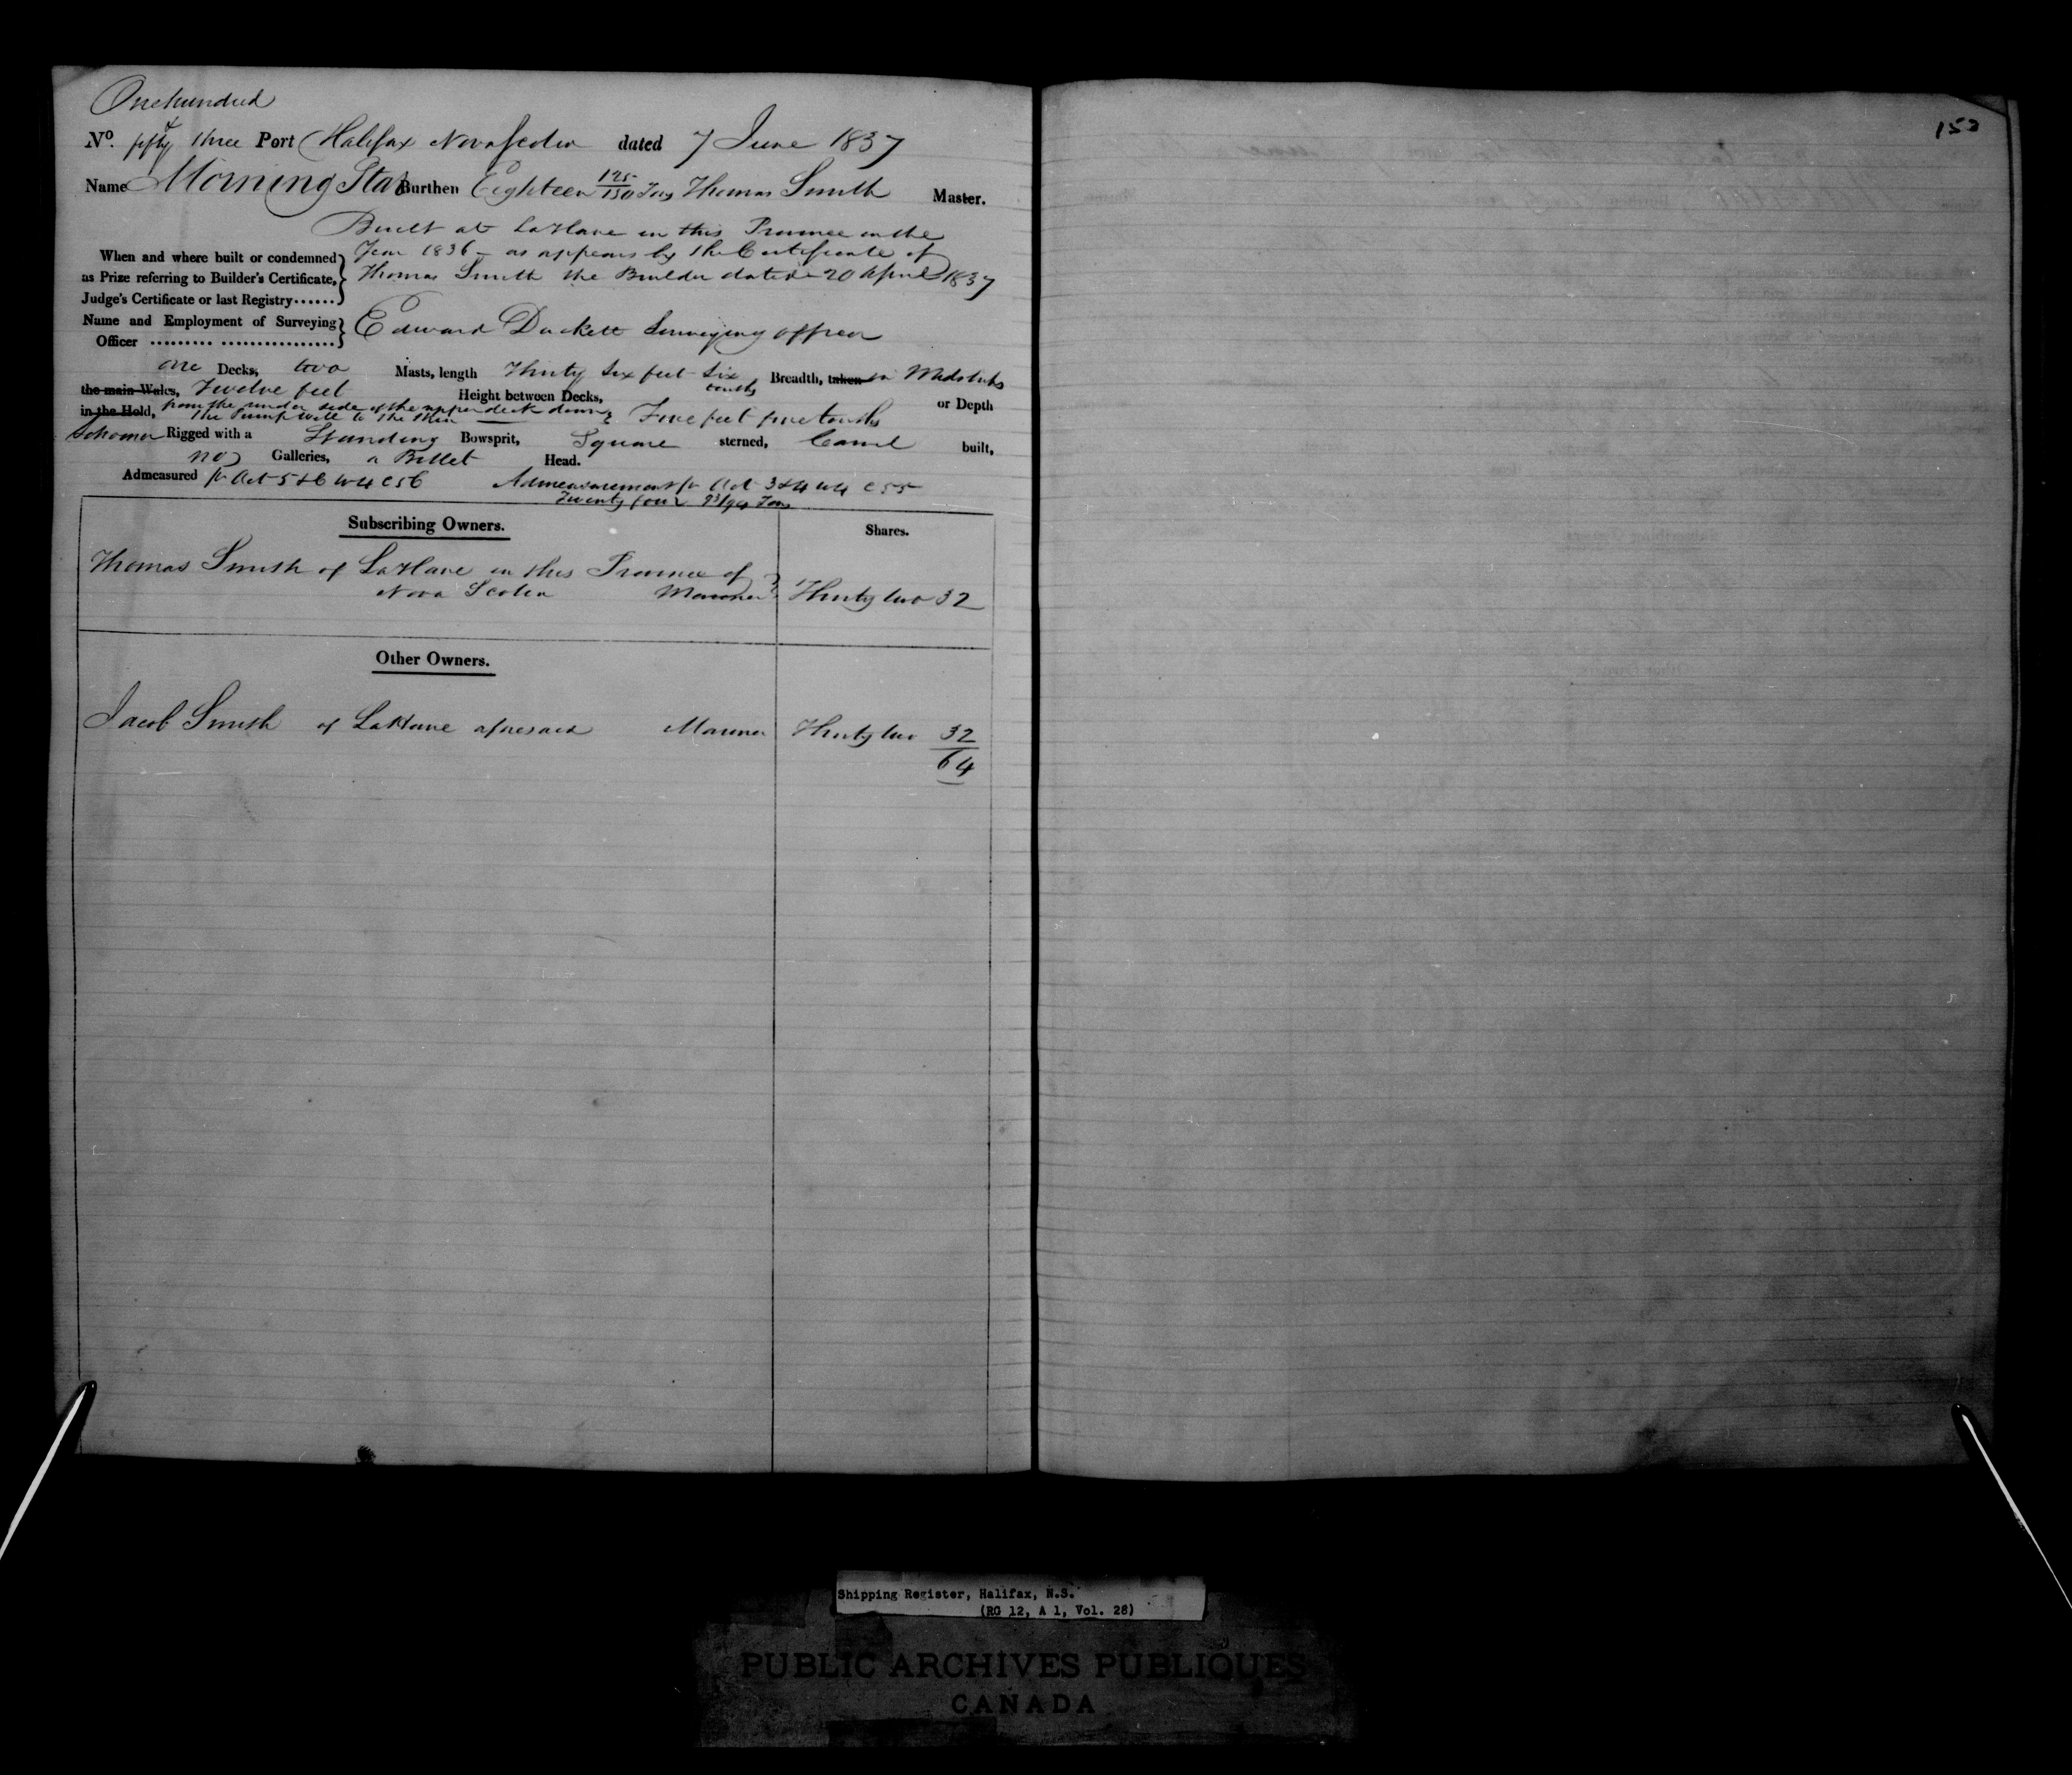 One hundred
No. fifty & three Port Halifax Nova Scotia dated 7 June 1837
Name Morning Star Burthen Eighteen Tons Thomas Smith Master.
Built at LaHave in this Province in the
When and where built or condemned Year 1836 - as appears by the Certificate of
as Prize referring to Builder's Certificate, Thomas Smith the Builder dated 20 April 1837
Judge's Certificate or last Registry......
Name and Employment of Surveying Edward Duckett Surveying officer
Officer ......... ................
one Decks, two Masts, length Thirty six feet six tenths Breadth, taken in Midships
the main Wales, Twelve feet Height between Decks, or Depth
in the Hold, from the under side of the upper deck down the Pump well to the Skin feet five tenths
Schooner Rigged with a Standing Bowsprit, Square sterned, Carvel built,
no Galleries, a Billet Head.
Admeasured pr Act 5 & 6 W 4 C 56 Admeasurement pr Act 3 & 4 W 4 C 55
Twenty four 93/94 Tons
Subscribing Owners. Shares.
Thomas Smith of LaHave in this Province of
Nova Scotia Mariner Thirty two 32
Other Owners.
Jacob Smith of LaHave aforesaid Mariner Thirty two 32
64
153
Shipping Register, Halifax, N.S.
(RG 12, A 1, Vol. 28)
PUBLIC ARCHIVES PUBLIQUES
CANADA